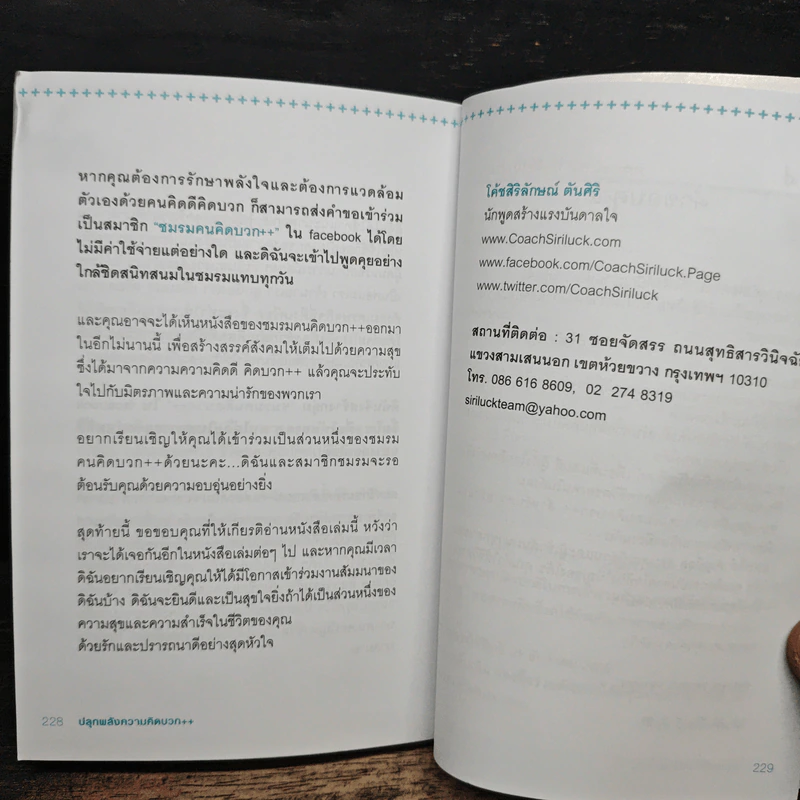 หากคุณต้องการรักษาพลังใจและต้องการแวดล้อม
ตัวเองด้วยคนคิดดีคิดบวก ก็สามารถส่งคำขอเข้าร่วม
เป็นสมาชิก "ชมรมคนคิดบวก++" ใน facebook ได้โดย
ไม่มีค่าใช้จ่ายแต่อย่างใด และดิฉันจะเข้าไปพูดคุยอย่าง
ใกล้ชิดสนิทสนมในชมรมแทบทุกวัน
และคุณอาจจะได้เห็นหนังสือของชมรมคนคิดบวก++ออกมา
ในอีกไม่นานนี้ เพื่อสร้างสรรค์สังคมให้เต็มไปด้วยความสุข
ซึ่งได้มาจากความความคิดดี คิดบวก++ แล้วคุณจะประทับ
ใจไปกับมิตรภาพและความน่ารักของพวกเรา
อยากเรียนเชิญให้คุณได้เข้าร่วมเป็นส่วนหนึ่งของชมรม
คนคิดบวก++ด้วยนะคะ...ดิฉันและสมาชิกชมรมจะรอ
ต้อนรับคุณด้วยความอบอุ่นอย่างยิ่ง
สุดท้ายนี้ ขอขอบคุณที่ให้เกียรติอ่านหนังสือเล่มนี้ หวังว่า
เราจะได้เจอกันอีกในหนังสือเล่มต่อๆ ไป และหากคุณมีเวลา
ดิฉันอยากเรียนเชิญคุณให้ได้มีโอกาสเข้าร่วมงานสัมมนาของ
ดิฉันบ้าง ดิฉันจะยินดีและเป็นสุขใจยิ่งถ้าได้เป็นส่วนหนึ่งของ
ความสุขและความสำเร็จในชีวิตของคุณ
ด้วยรักและปรารถนาดีอย่างสุดหัวใจ
228 ปลุกพลังความคิดบวก++
โค้ชสิริลักษณ์ ตันศิริ
นักพูดสร้างแรงบันดาลใจ
www.CoachSiriluck.com
www.facebook.com/CoachSiriluck.Page
www.twitter.com/CoachSiriluck
สถานที่ติดต่อ : 31 ซอยจัดสรร ถนนสุทธิสารวินิจฉัย
แขวงสามเสนนอก เขตห้วยขวาง กรุงเทพฯ 10310
โทร. 086 616 8609, 02 274 8319
siriluckteam@yahoo.com
229